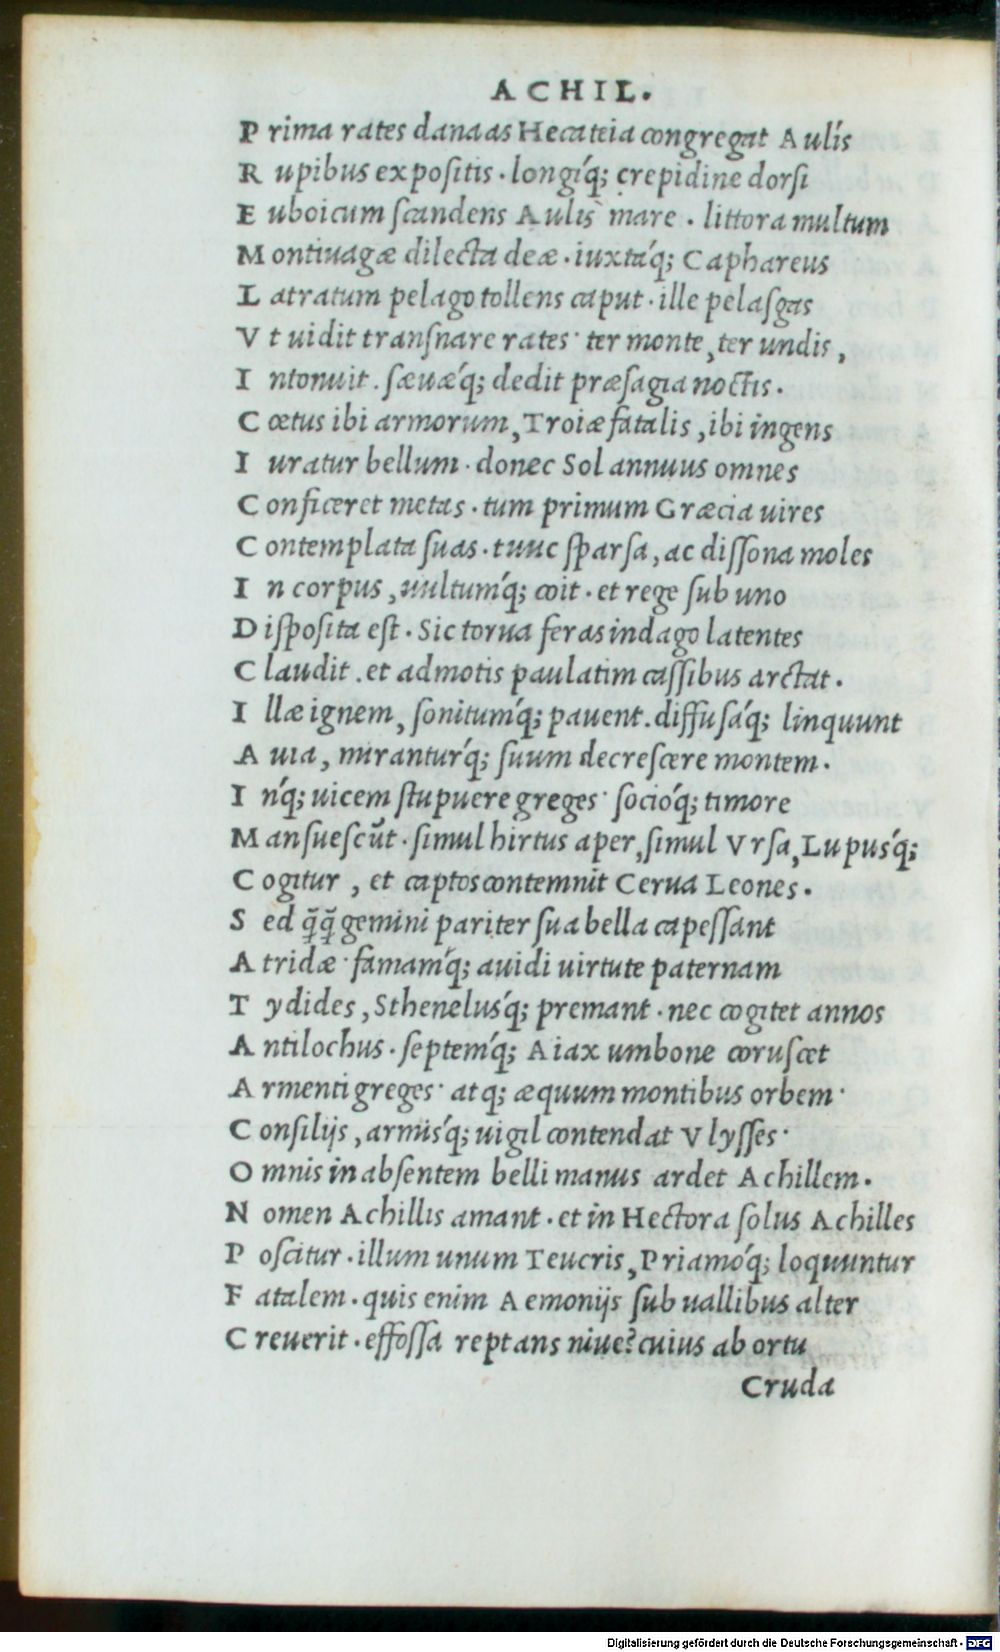 ACHIL.
Prima rates danaas Hecateia congregat Aulís
Rupibus expoſitis . longíq́; crepidine dorſi
Euboicum ſcandens Aulis mare . littora multum
Montiuagæ dilecta deæ . iuxtáq́; Caphareus
Latratum pelago tollens caput . ille pelaſgas
Vt uidit tranſnare rates · ter monte, ter undis,
Intonuit . ſæuǽq; dedit præſagia noctis.
Cœtus ibi armorum, Troiæ fatalis, ibi ingens
Iuratur bellum . donec Sol annuus omnes
Conficeret metas . tum primum Græcia uires
Contemplata ſuas . tuuc ſparſa, ac diſſona moles
In corpus, uultumq́; coit . et rege ſub uno
Diſpoſita eſt . Sic torua feras indago latentes
Claudit . et admotis paulatim caſſibus arctat.
Illæ ignem, ſonitumq́; pauent . diffuſáq; linquunt
Auia, miranturq́; ſuum decreſcere montem.
Inq́; uicem ſtupuere greges · socióq; timore
Manſueſcūt . ſimul hirtus aper, ſimul Vrſa, Lupusq́;
Cogitur, et captos contemnit Cerua Leones.
Sed q̄q̄ gemini pariter ſua bella capeſſant
Atridæ · famamq́; auidi uirtute paternam
Tydides, Sthenelusq́; premant . nec cogitet annos
Antilochus . ſeptemq́; Aiax umbone coruſcet
Armenti greges · atq; æquum montibus orbem ·
Conſilijs, armisq́; uigil contendat Vlyſſes ·
Omnis in abſentem belli manus ardet Achillem.
Nomen Achillis amant . et in Hectora ſolus Achilles
Poſcitur . illum unum Teucris, Priamóq; loquuntur
Fatalem . quis enim Aemonijs ſub uallibus alter
Creuerit . effoſſa reptans niue? cuius ab ortu
Cruda
Digitalisierung gefördert durch die Deutsche Forschungsgemeinschaft - DFG